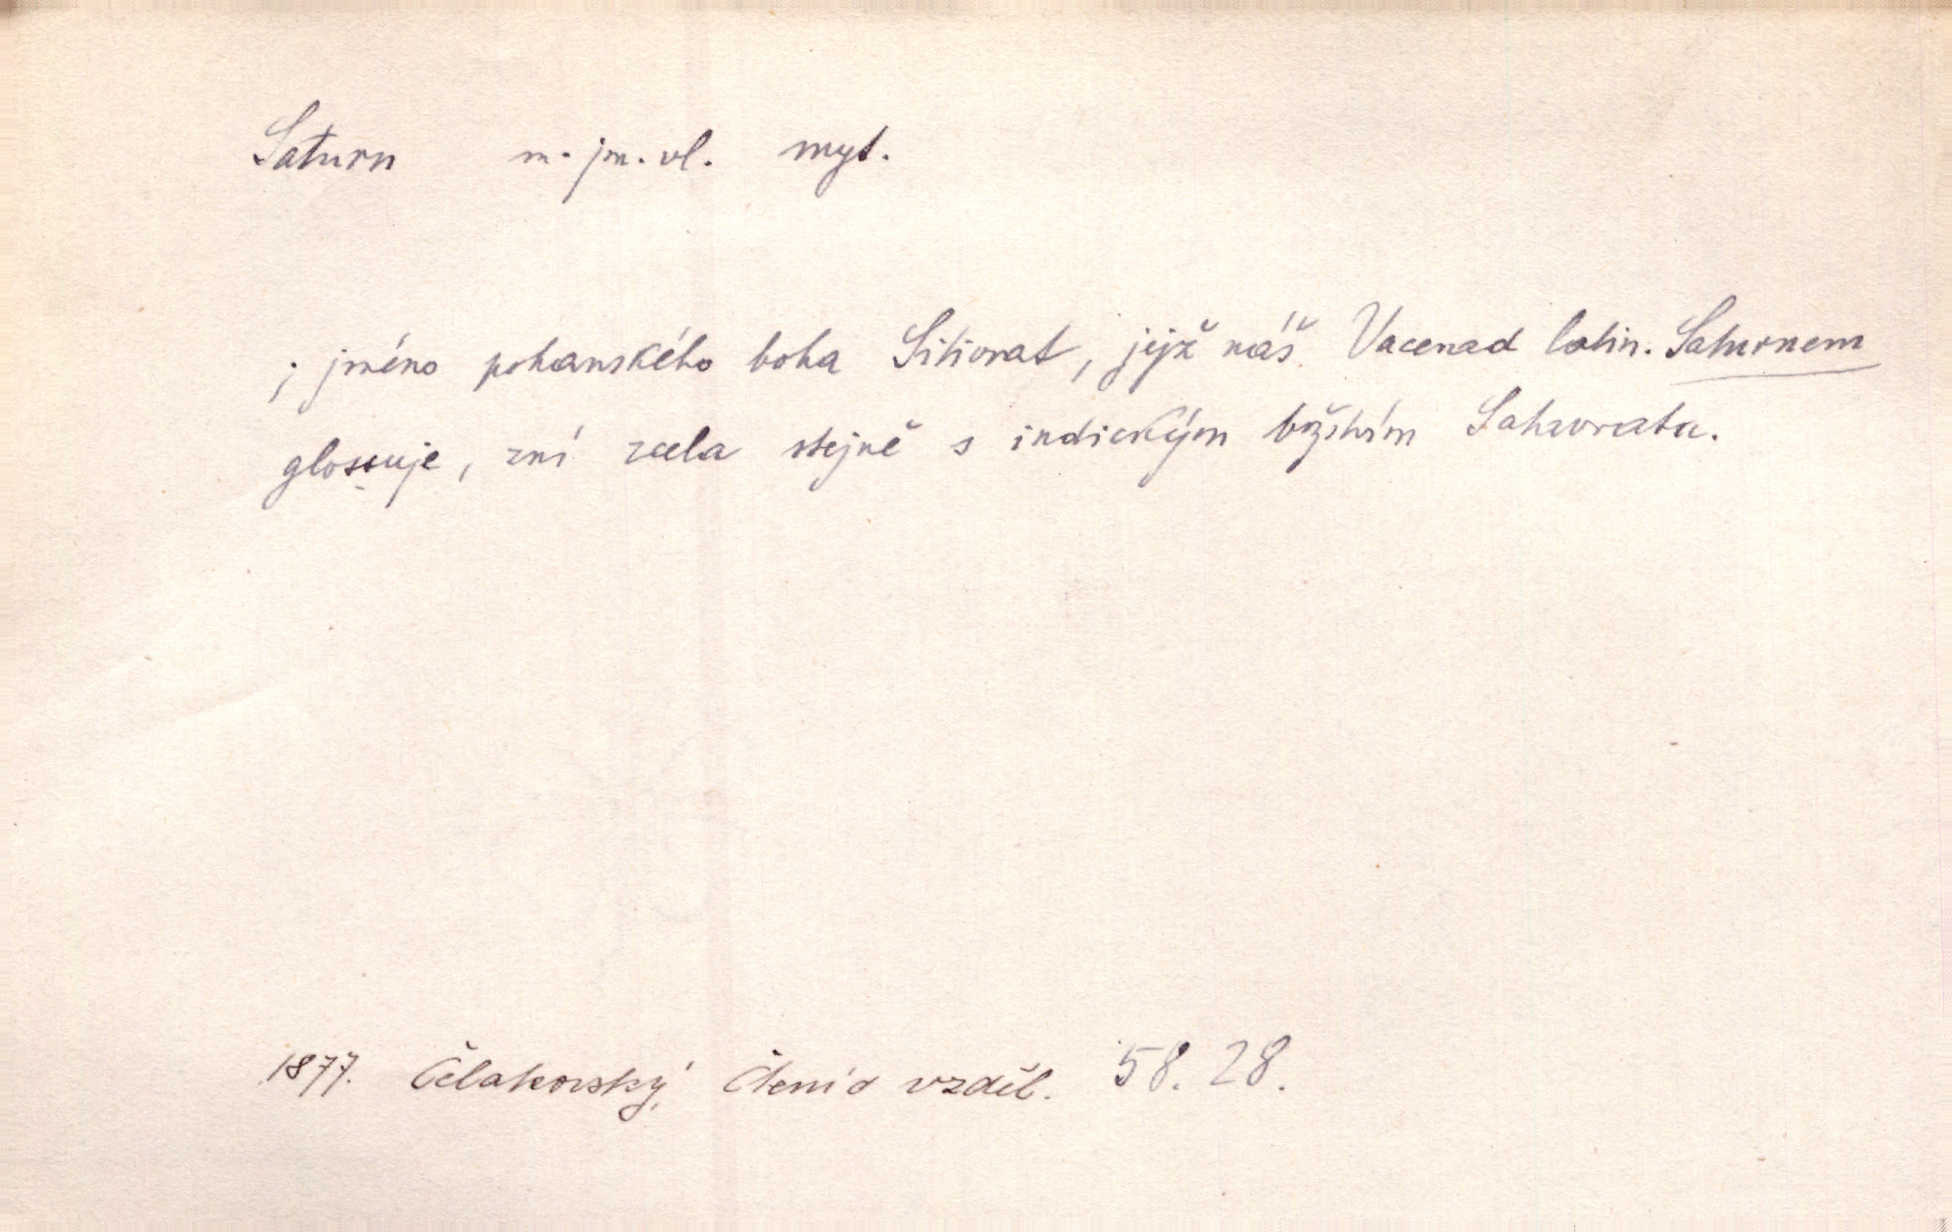 Saturn m. jm. vl. myt.
; jméno pohanského boha Sitivrat, jejž náš Vacerad latin. Saturnem
glossuje, zní zcela stejně s indickým božstvím Satravrata.
1877. Čelakovský, Čtení o vzděl. 58. 28.